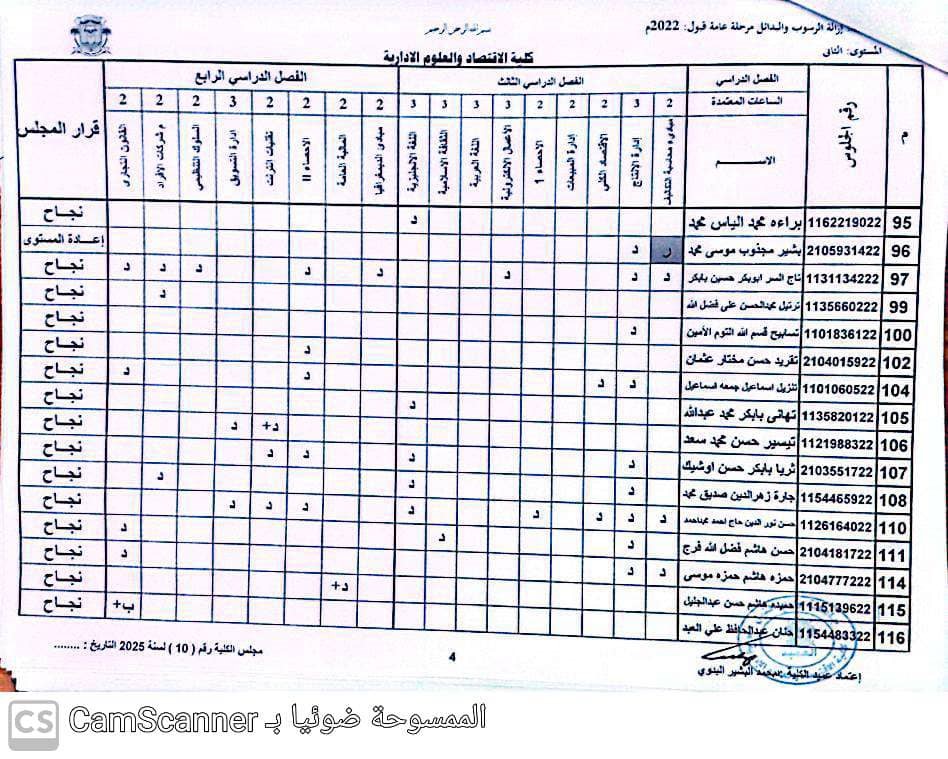 زالة الرسوب والبدائل مرحلة عامة قبول: 2022م
بسم الله الرحمن الرحيم
المستوى: الثاني
كلية الاقتصاد والعلوم الادارية
م رقم الجلوس الفصل الدراسي الفصل الدراسي الثالث الفصل الدراسي الرابع قرار المجلس
الساعات المعتمدة 2 3 2 2 2 3 3 3 3 2 2 2 2 3 2 2 2
الاســـم مبادىء محاسبة التكاليف إدارة الانتاج الاقتصاد الكلي إدارة المبيعات الاحصاء 1 الاعمال الالكترونية اللغة العربية الثقافة الاسلامية اللغة الانجليزية مبادئ الديمغرافيا المالية العامة الاحصاء II تقنيات انترنت ادارة التسويق السلوك التنظيمي م شركات الافراد القانون التجاري
95 1162219022 براءه محمد الياس محمد د نجاح
96 2105931422 بشير مجذوب موسى محمد ر د إعادة المستوى
97 1131134222 تاج السر ابوبكر حسين بابكر د د د د د د د د نجاح
99 1135660222 ترتيل محمدالحسن على فضل الله د نجاح
100 1101836122 تسابيح قسم الله التوم الأمين د نجاح
102 2104015922 تغريد حسن مختار عثمان د نجاح
104 1101060522 تنزيل اسماعيل جمعه اسماعيل د د د د نجاح
105 1135820122 تهانى بابكر محمد عبدالله د نجاح
106 1121988322 تيسير حسن محمد سعد د+ د نجاح
107 2103551722 ثريا بابكر حسن اوشيك د د د د نجاح
108 1154465922 جارة زهرالدين صديق محمد د د د نجاح
110 1126164022 حسن نور الدين حاج احمد محمداحمد د د د د د د د د نجاح
111 2104181722 حسن هاشم فضل الله فرج د د د نجاح
114 2104777222 حمزه هاشم حمزه موسى د د د نجاح
115 1115139622 حميده هاشم حسن عبدالجليل د+ نجاح
116 1154483322 حنان عبدالحافظ علي العبد ب+ نجاح
إعتماد عميد الكلية :محمد البشير البدوي
4
مجلس الكلية رقم ( 10 ) لسنة 2025 التاريخ : ........
الممسوحة ضوئيا بـ CamScanner
CS